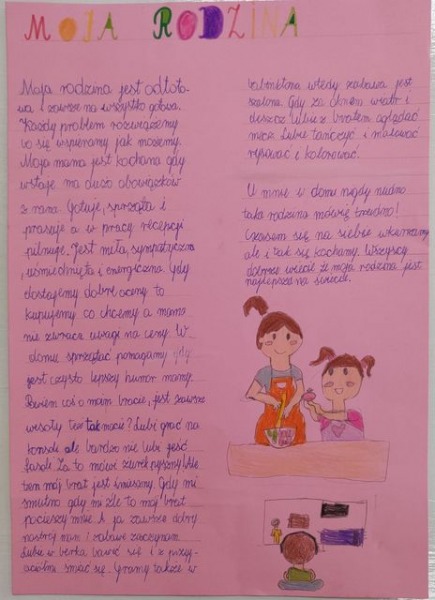 MOJA RODZINA
Moja rodzina jest odloto-
wa i zawsze na wszystko gotowa.
Każdy problem rozwiążemy
bo się wspieramy jak możemy.
Moja mama jest kochana gdy
wstaje ma dużo obowiązków
z rana. Gotuje, sprząta i
prasuje a w pracy recepcji
pilnuje. Jest miła, sympatyczna
, uśmiechnięta i energiczna. Gdy
dostajemy dobre oceny to
kupujemy co chcemy a mama
nie zwraca uwagi na ceny. W
domu sprzątać pomagamy gdy
jest czysto lepszy humor mamy.
Powiem coś o moim bracie, jest zawsze
wesoły też tak macie? Lubi grać na
konsole ale bardzo nie lubi jeść
fasole. Za to mówi żurek pyszny! Ale
ten mój brat jest śmieszny. Gdy mi
smutno gdy mi źle to mój brat
pocieszy mnie. A ja zawsze dobry
nastrój mam i zabawę zaczynam.
Lubię w berka bawić się i z przyj-
aciółmi śmiać się. Gramy także w
wtedy zabawa jest
szalona. Gdy za oknem wiatr i
deszcz lubię z bratem oglądać
mecz. Lubię tańczyć i malować
rysować i kolorować.
U mnie w domu nigdy nudno
taka rodzina mówię trudno!
Czasem się na siebie wkurzamy
ale i tak się kochamy. Wszyscy
dobrze wiecie że moja rodzina jest
najlepsza na świecie.